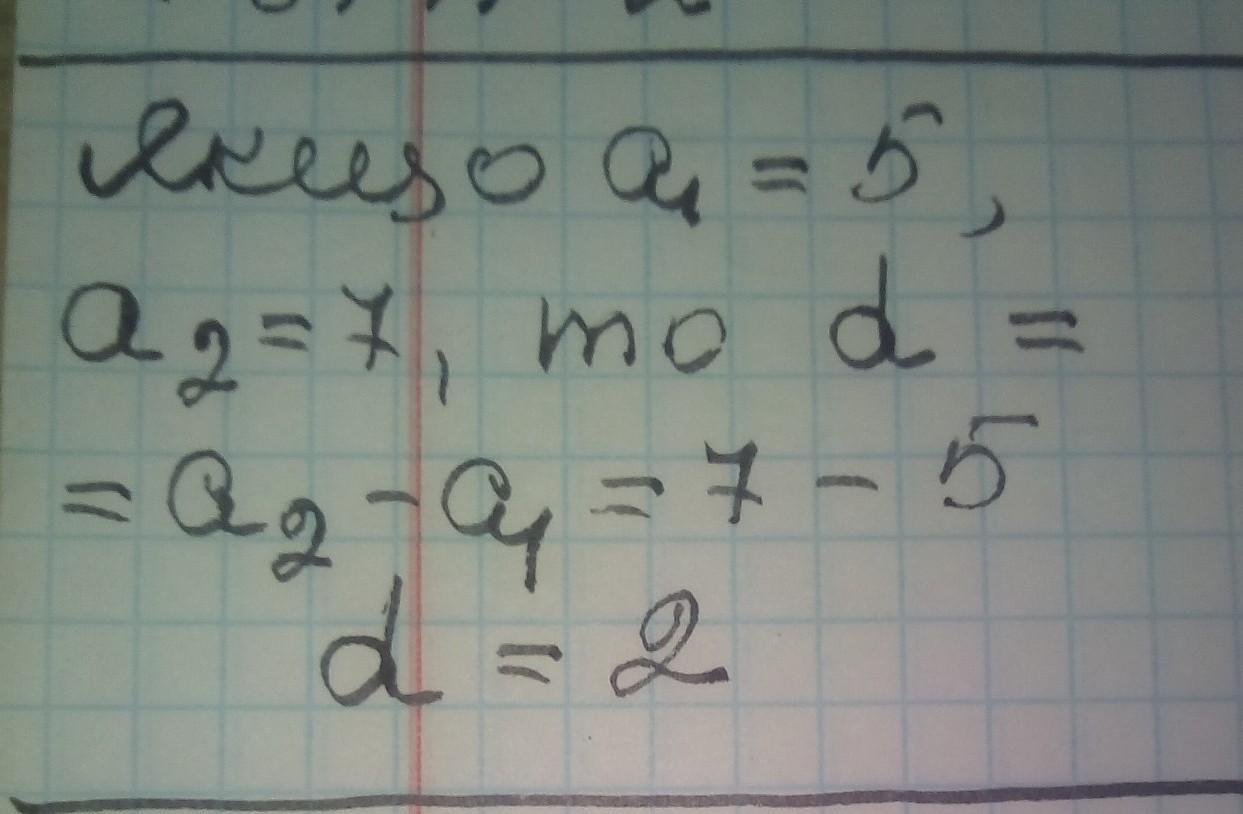 Якщо a₁ = 5,
a₂ = 7, то d =
= a₂ - a₁ = 7 - 5
d = 2